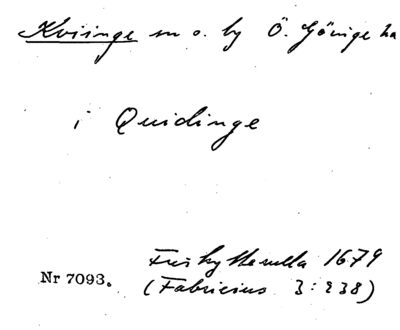 Kvisinge sn o. by Ö. Göinge hd
i Quidinge
1679
Nr 7093.
(Fabricius 3:238)